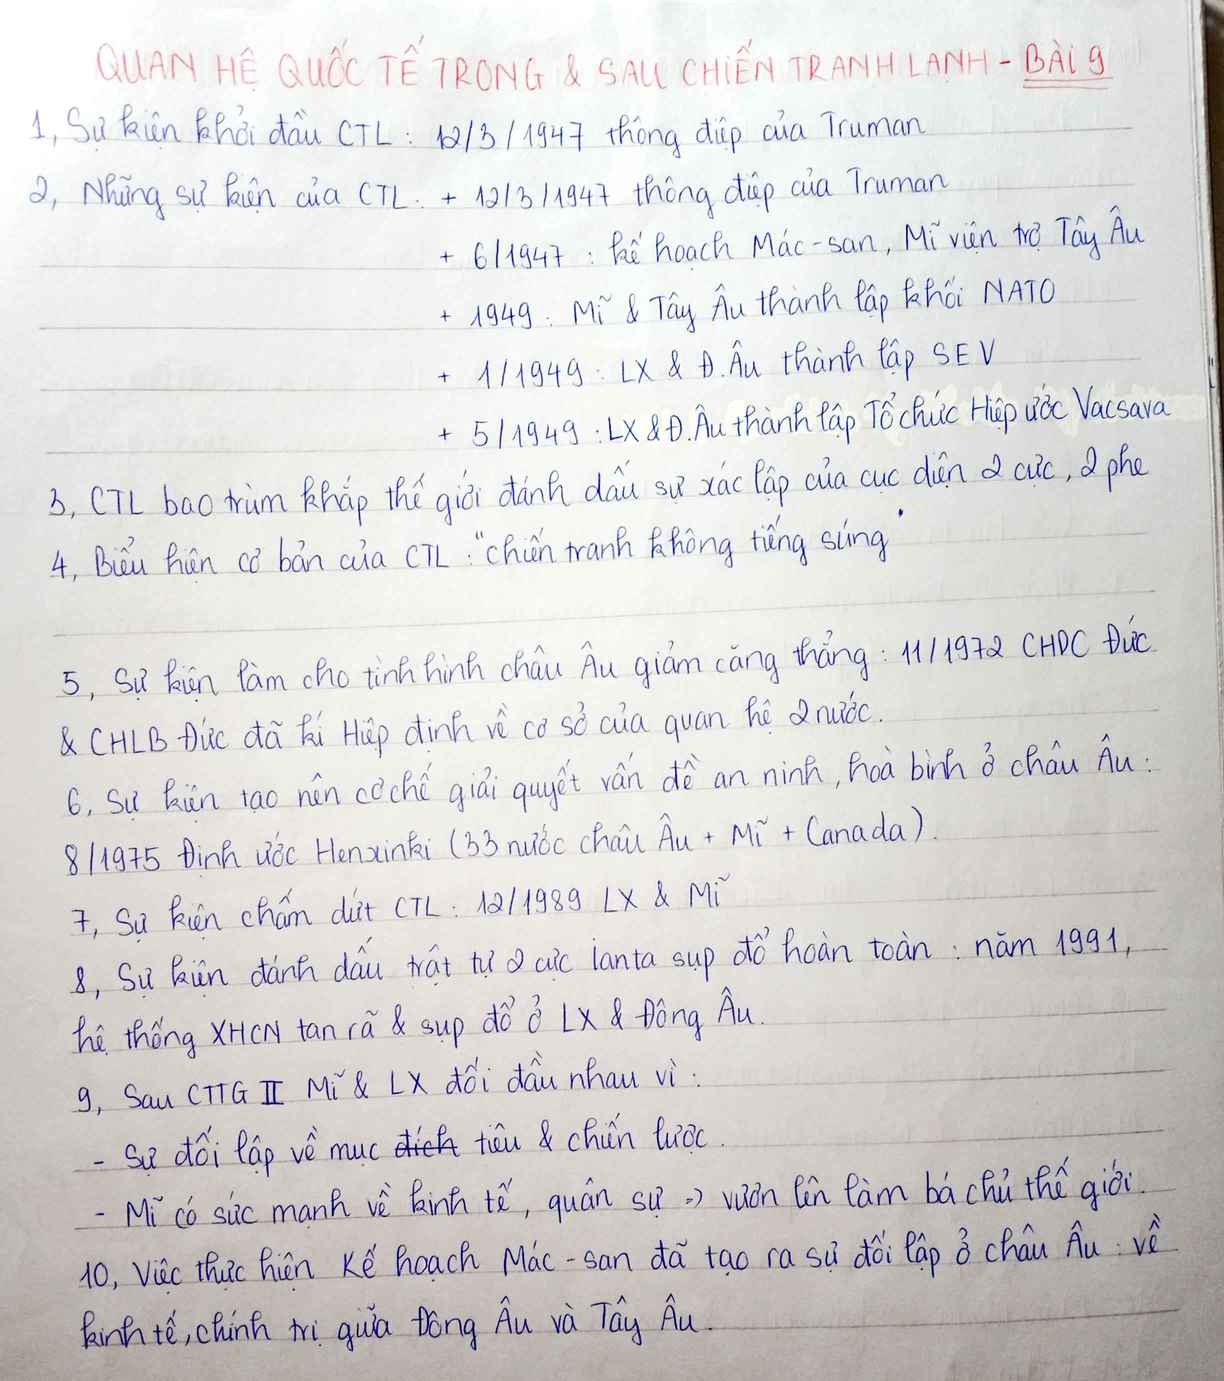 QUAN HỆ QUỐC TẾ TRONG & SAU CHIẾN TRANH LẠNH - BÀI 9
1, Sự kiện khởi đầu CTL : 12/3/1947 thông điệp của Truman
2, Những sự kiện của CTL : + 12/3/1947 thông điệp của Truman
+ 6/1947 : kế hoạch Mác-san, Mĩ viện trợ Tây Âu
+ 1949 : Mĩ & Tây Âu thành lập khối NATO
+ 1/1949 : LX & Đ.Âu thành lập SEV
+ 5/1949 : LX & Đ.Âu thành lập Tổ chức Hiệp ước Vacsava
3, CTL bao trùm khắp thế giới đánh dấu sự xác lập của cục diện 2 cực, 2 phe
4, Biểu hiện cơ bản của CTL : "chiến tranh không tiếng súng"
5, Sự kiện làm cho tình hình châu Âu giảm căng thẳng : 11/1972 CHDC Đức
& CHLB Đức đã kí Hiệp định về cơ sở của quan hệ 2 nước.
6, Sự kiện tạo nên cơ chế giải quyết vấn đề an ninh, hoà bình ở châu Âu :
8/1975 Định ước Henxinki (33 nước châu Âu + Mĩ + Canada).
7, Sự kiện chấm dứt CTL : 12/1989 LX & Mĩ
8, Sự kiện đánh dấu trật tự 2 cực Ianta sụp đổ hoàn toàn : năm 1991,
hệ thống XHCN tan rã & sụp đổ ở LX & Đông Âu.
9, Sau CTTG II Mĩ & LX đối đầu nhau vì :
- Sự đối lập về mục đích tiêu & chiến lược.
- Mĩ có sức mạnh về kinh tế, quân sự => vươn lên làm bá chủ thế giới.
10, Việc thực hiện Kế hoạch Mác-san đã tạo ra sự đối lập ở châu Âu : về
kinh tế, chính trị giữa Đông Âu và Tây Âu.